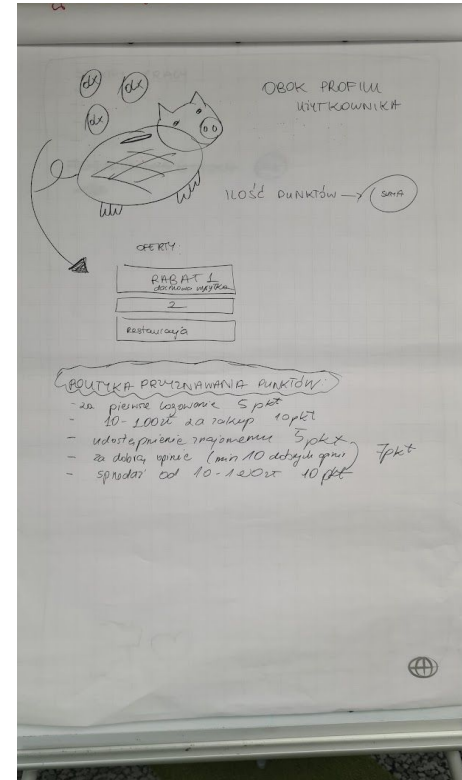 olx
olx
olx
OBOK PROFILU
UŻYTKOWNIKA
ILOŚĆ PUNKTÓW → SUMA
OFERTY
RABAT 1
darmowa wysyłka
2
restauracja
POLITYKA PRZYZNAWANIA PUNKTÓW:
- za pierwsze logowanie 5 pkt
- 10-100zł za zakup 10pkt
- udostępnienie znajomemu 5pkt
- za dobrą opinię (min 10 dobrych opinii) 7pkt
- sprzedaż od 10-100zł 10 pkt